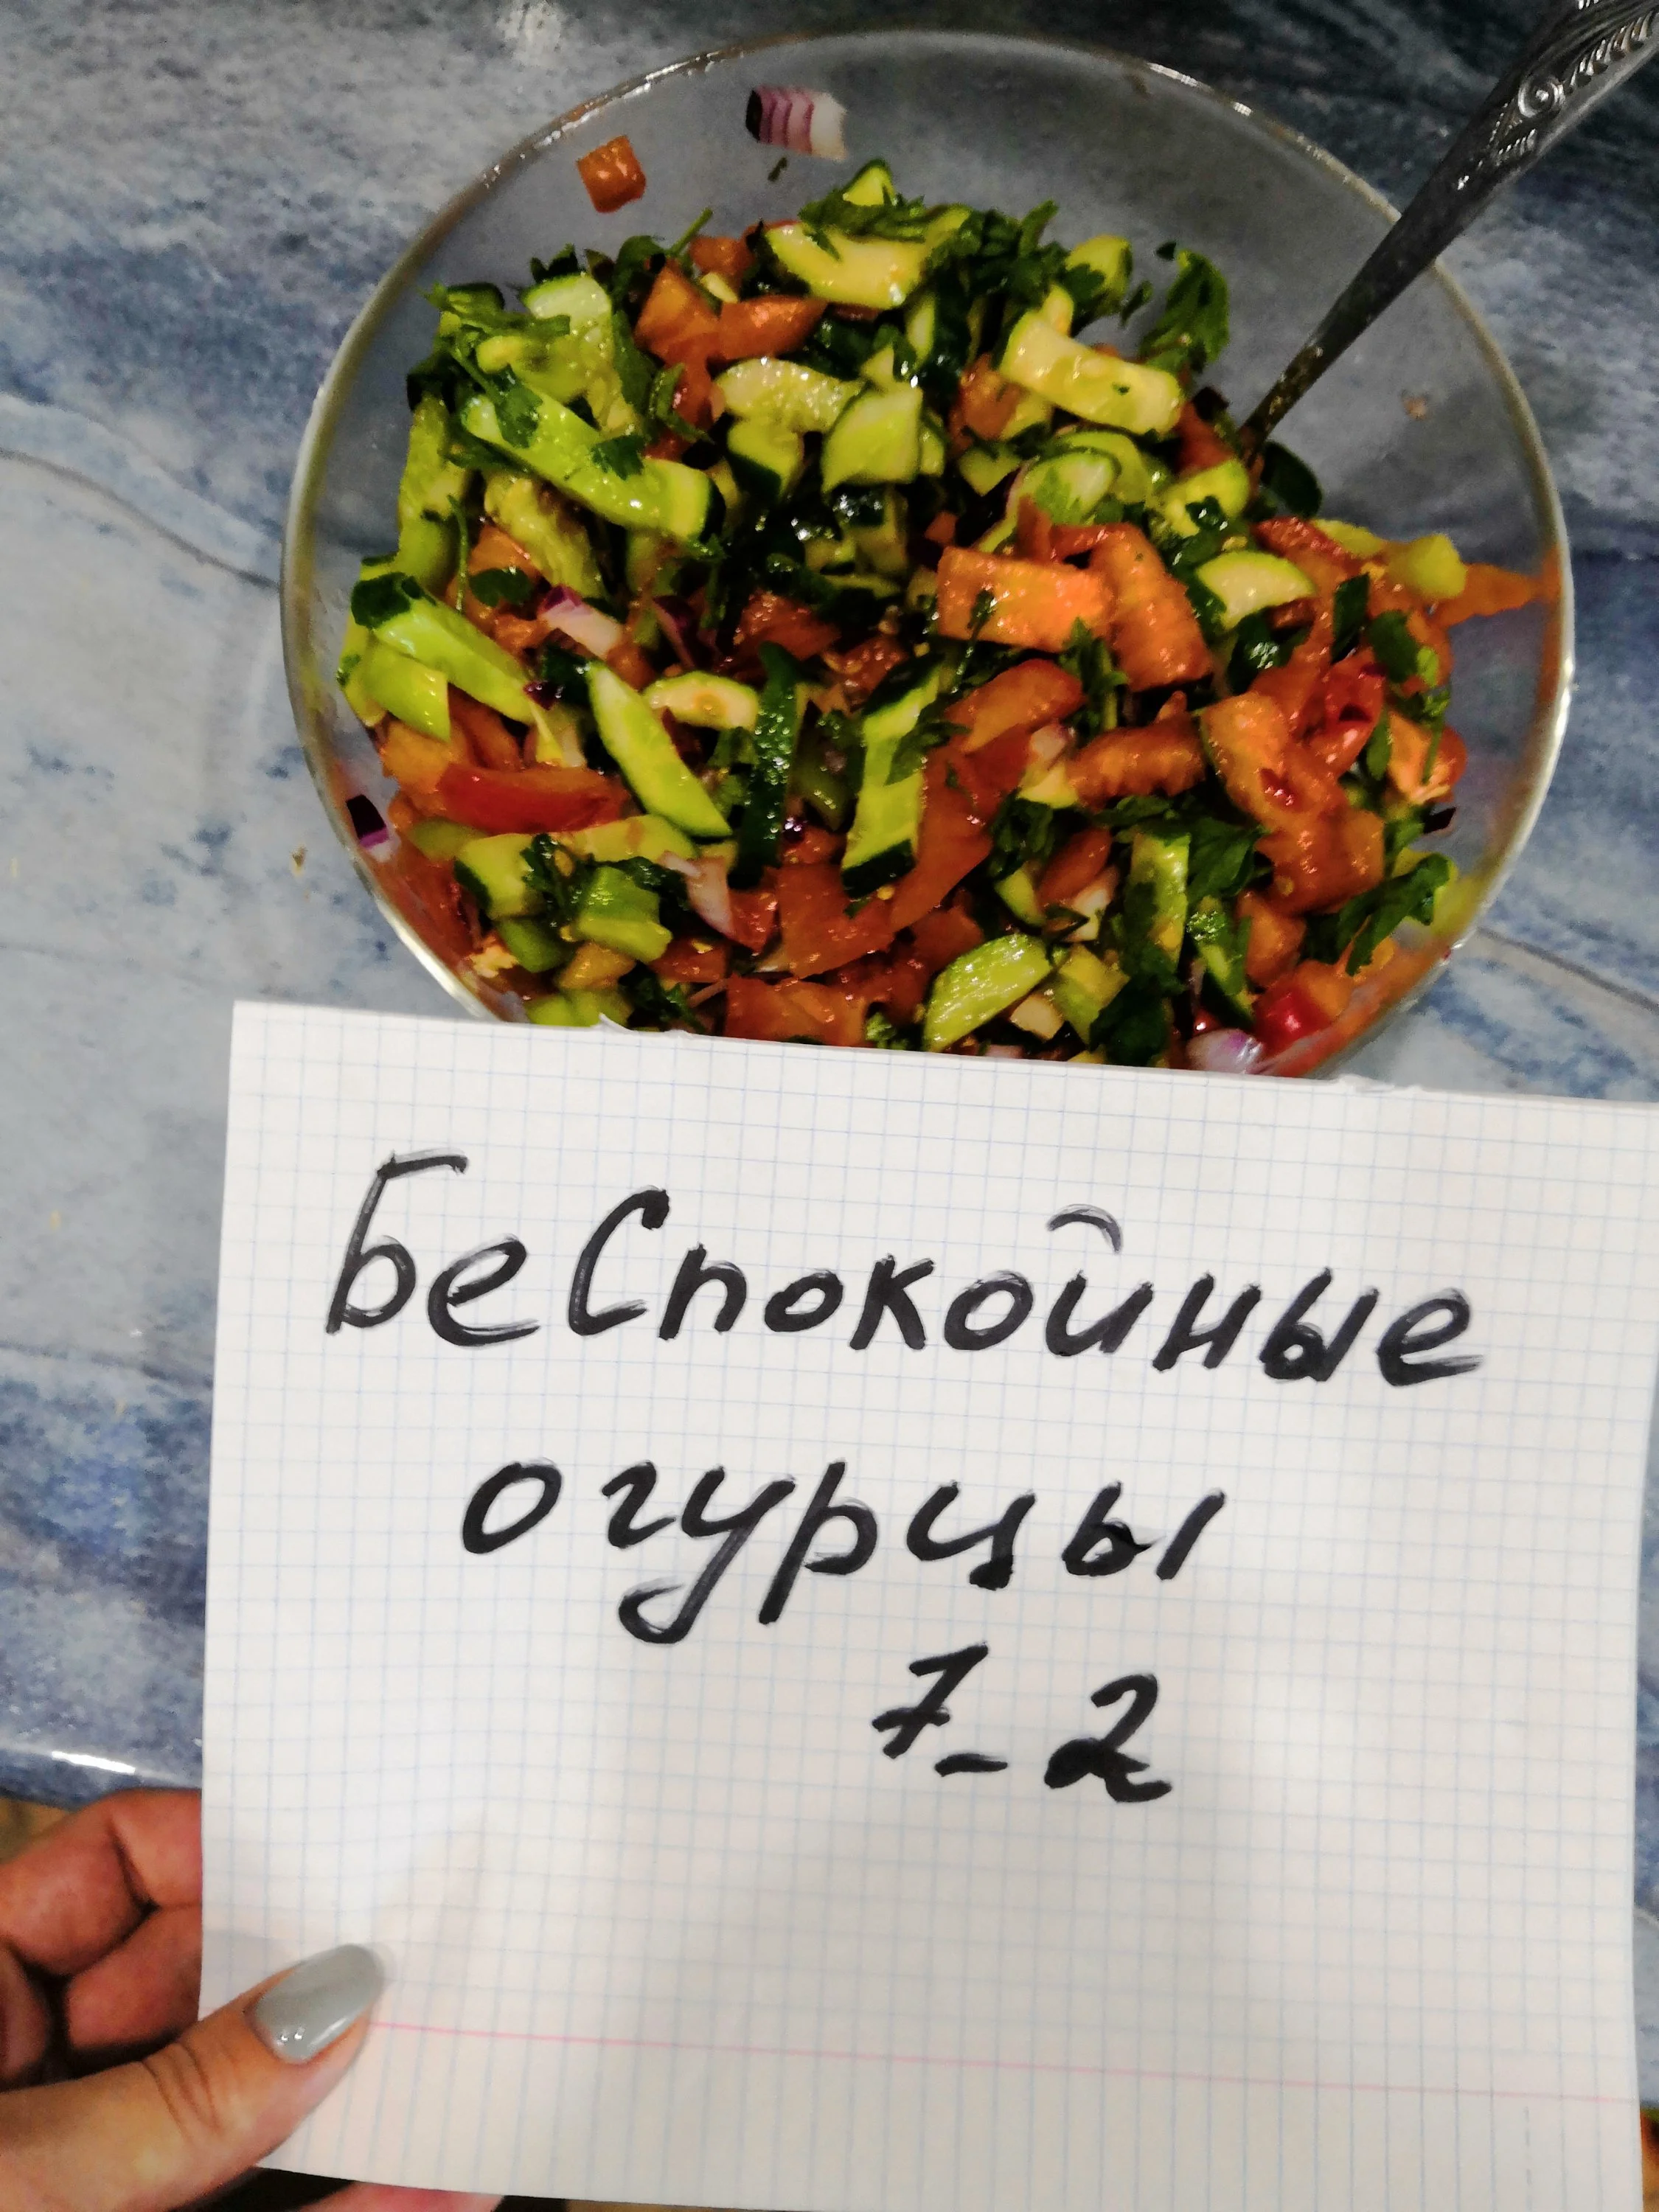 Беспокойные
огурцы
7_2